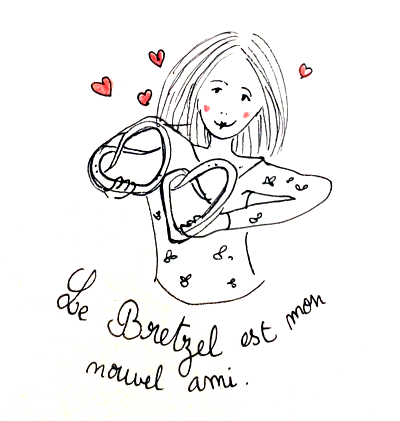 Le Bretzel est mon
nouvel ami.